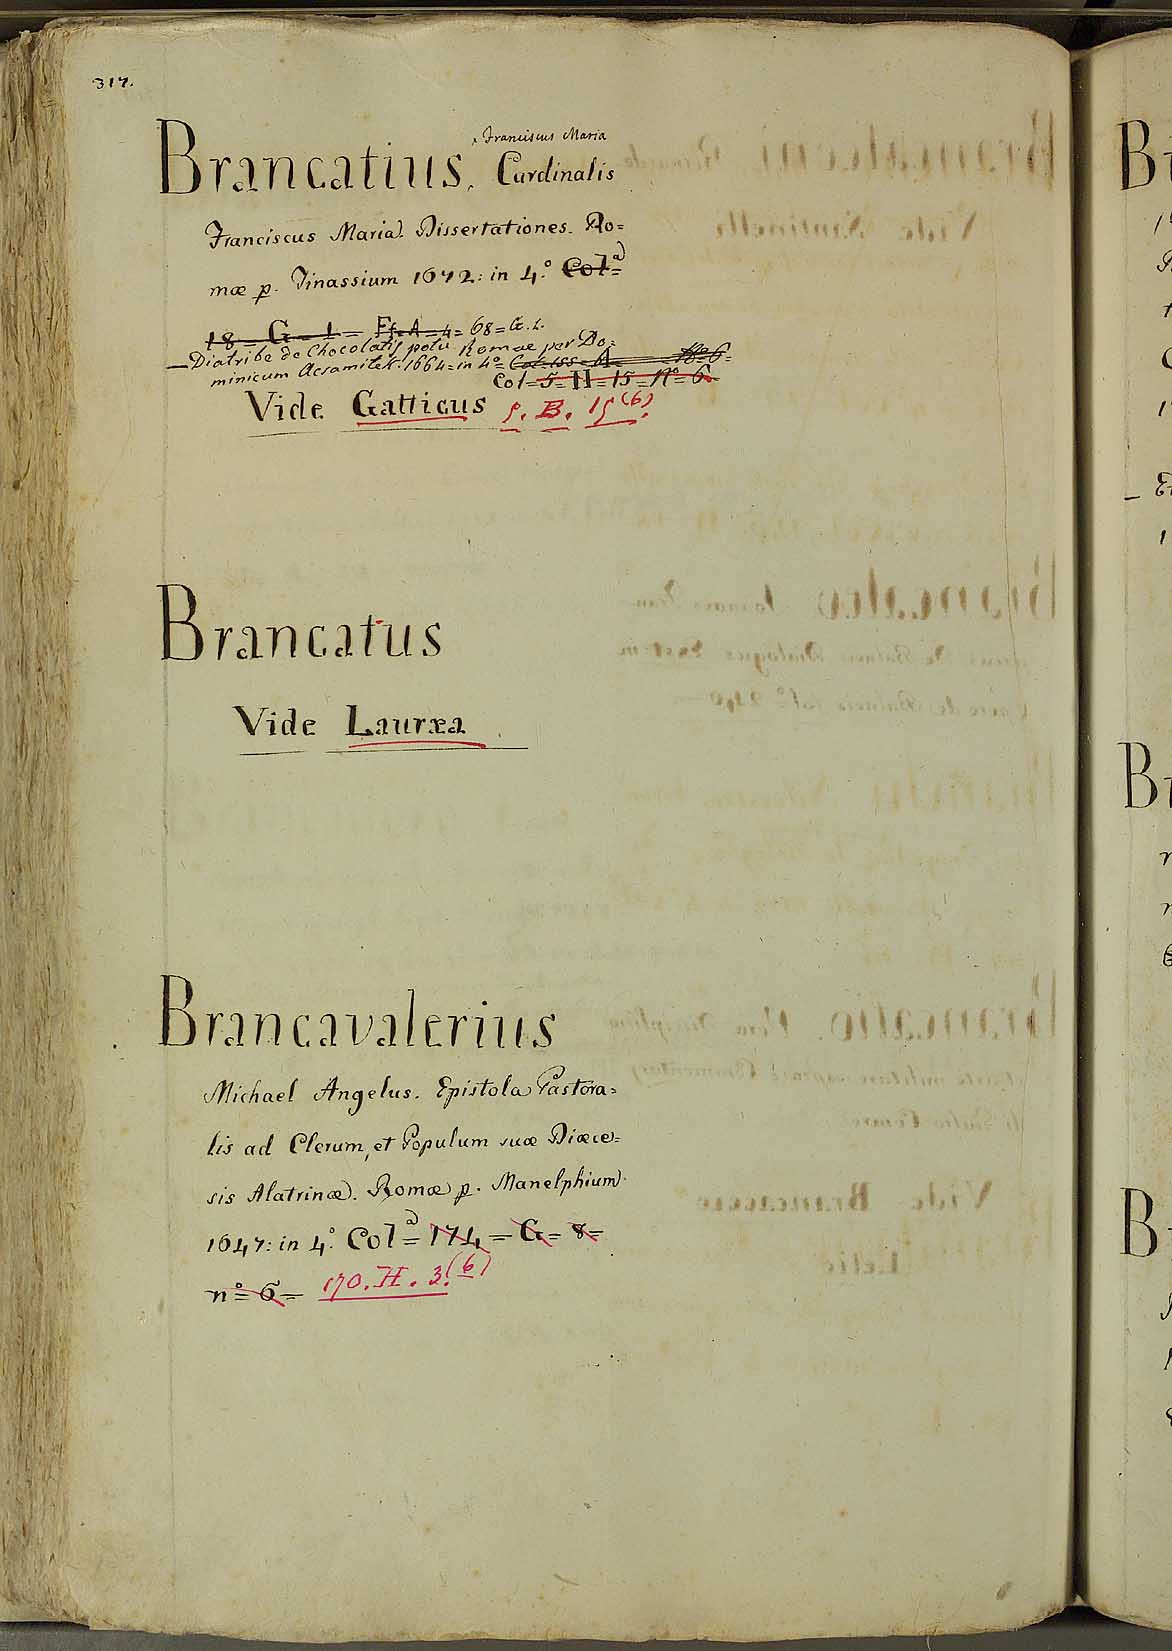 317.
, Franciscus Maria
Brancatius. Cardinalis
Franciscus Maria. Dissertationes. Ro=
mæ p. Tinassium 1672: in 4.° Col.a=
18=G=1= Ff=A=4= 68=G.1.
— Diatribe de Chocolatis potu Romae per Do=
minicum Acsamitek. 1664=in 4°= Col=155=A N°6=
Col=5=H=15=N°=6
Vide Gatticus 5. B. 15 (6).
Brancatus
Vide Lauræa
Brancavalerius
Michael Angelus. Epistola Pastora=
lis ad Clerum, et Populum suæ Diœce=
sis Alatrinæ. Romæ p. Manelphium.
1647: in 4.° Col.a= 174=G=8=
n°=6= 170. H. 3. (6)
Br
Br
Br